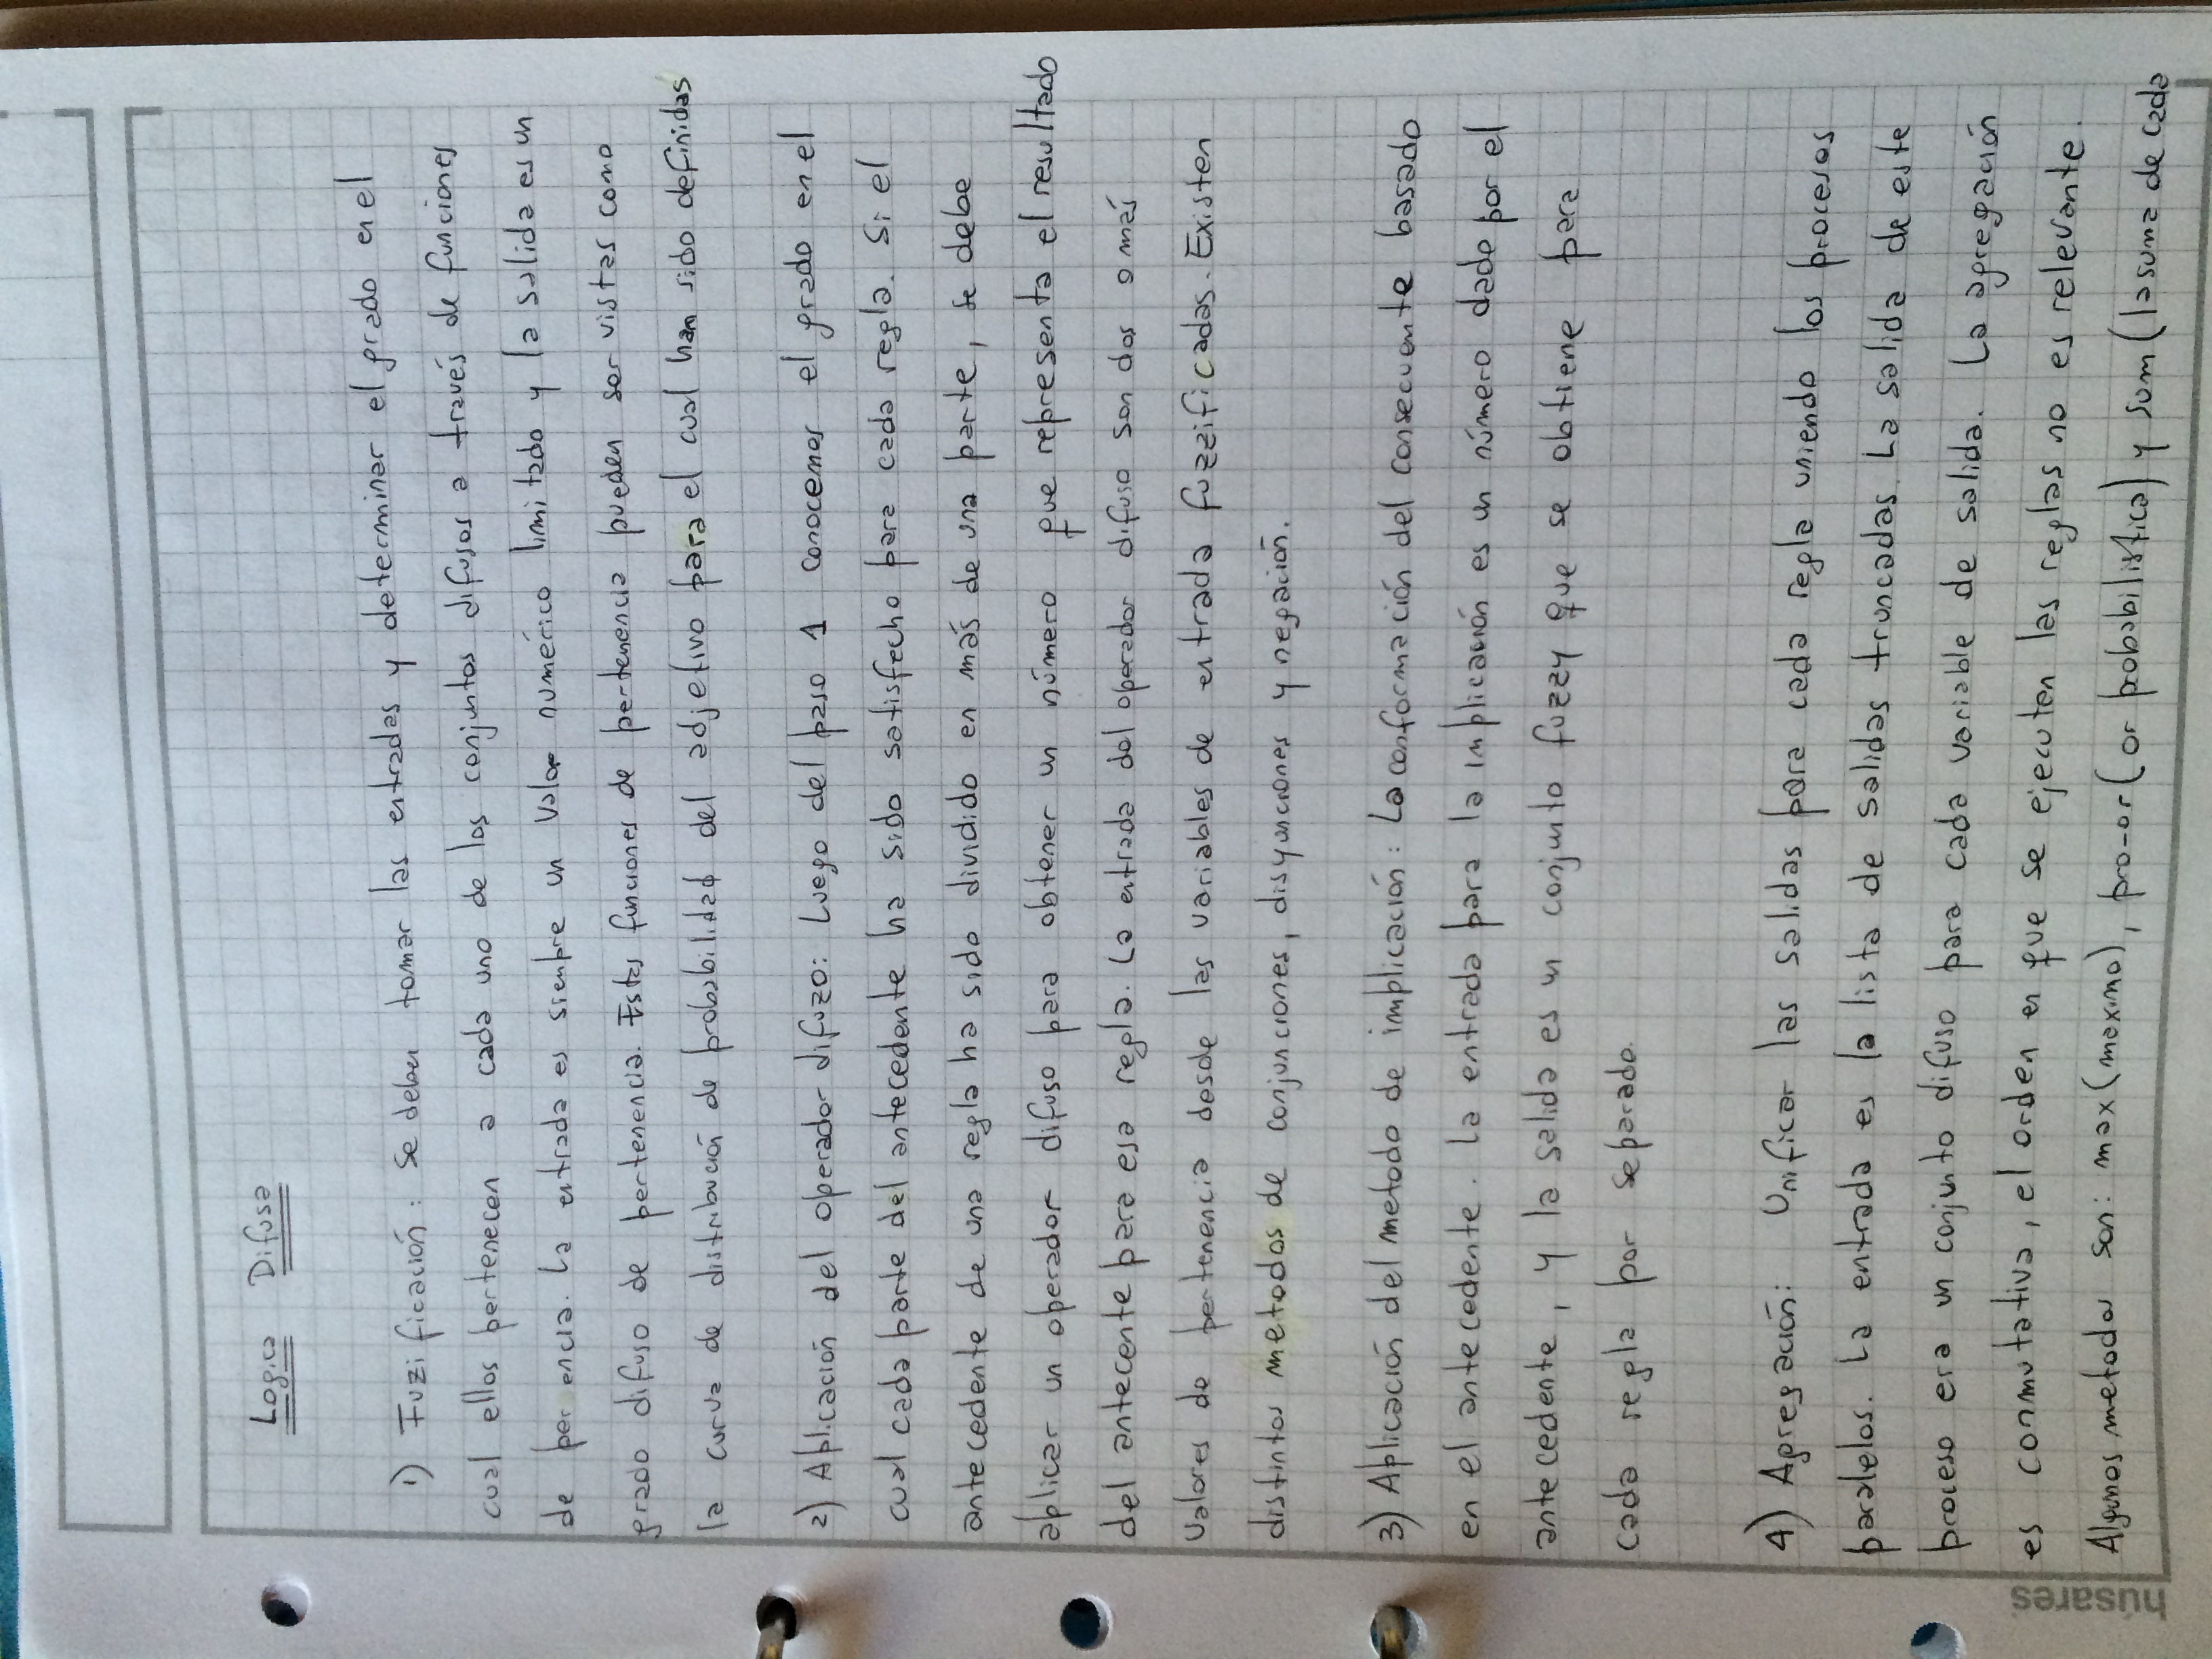 Logica Difusa
1) Fuzificación: Se deben tomar las entradas y determinar el grado en el
cual ellos pertenecen a cada uno de los conjuntos difusos a través de funciones
de per encia. La entrada es siempre un valor numérico limitado y la salida es un
grado difuso de pertenencia. Estas funciones de pertenencia pueden ser vistas como
la curva de distribución de probabilidad del adjetivo para el cual han sido definidas
2) Aplicación del operador difuzo: Luego del paso 1 conocemos el grado en el
cual cada parte del antecedente ha sido satisfecho para cada regla. Si el
antecedente de una regla ha sido dividido en más de una parte, se debe
aplicar un operador difuso para obtener un número que representa el resultado
del antecente para esa regla. La entrada del operador difuso son dos o más
valores de pertenencia desde las variables de entrada fuzzificadas. Existen
distintos metodos de conjunciones, disyunciones y negación.
3) Aplicación del metodo de implicación: La conformación del consecuente basado
en el antecedente. La entrada para la implicación es un número dado por el
antecedente, y la salida es un conjunto fuzzy que se obtiene para
cada regla por separado.
4) Agregación: Unificar las salidas para cada regla uniendo los procesos
paralelos. La entrada es la lista de salidas truncadas. La salida de este
proceso era un conjunto difuso para cada variable de salida. La agregación
es conmutativa, el orden en que se ejecuten las reglas no es relevante.
Algunos metodos son: max (maximo), pro-or (or probabilistica) y sum (la suma de cada
húsares